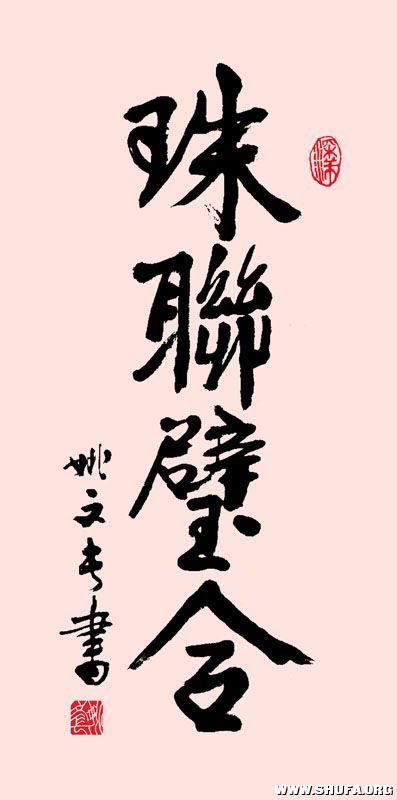 珠聯璧合
姚文才書
WWW.SHUFA.ORG